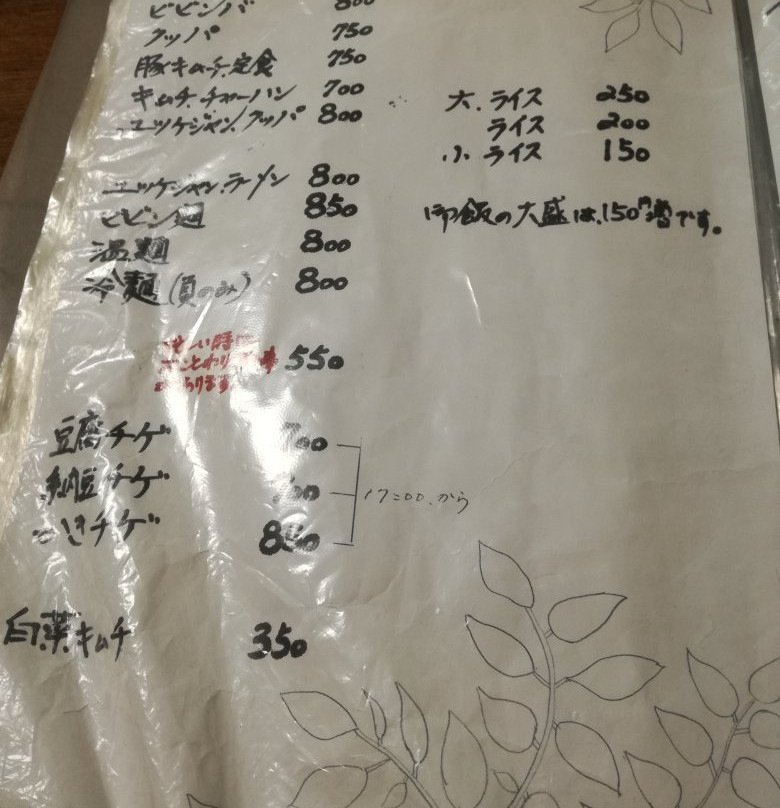 ビビンバ 800
クッパ 750
豚キムチ定食 750
キムチ.チャーハン 700
ユッケジャン.クッパ 800
ユッケジャン.ラーメン 800
ビビン麺 850
温麺 800
冷麺(夏のみ) 800
忙しい時
おことわり
あります 550
豆腐チゲ 700
納豆チゲ
かきチゲ 850
17:00.から
白菜キムチ 350
大.ライス 250
ライス 200
小 ライス 150
御飯の大盛は.150円増です。